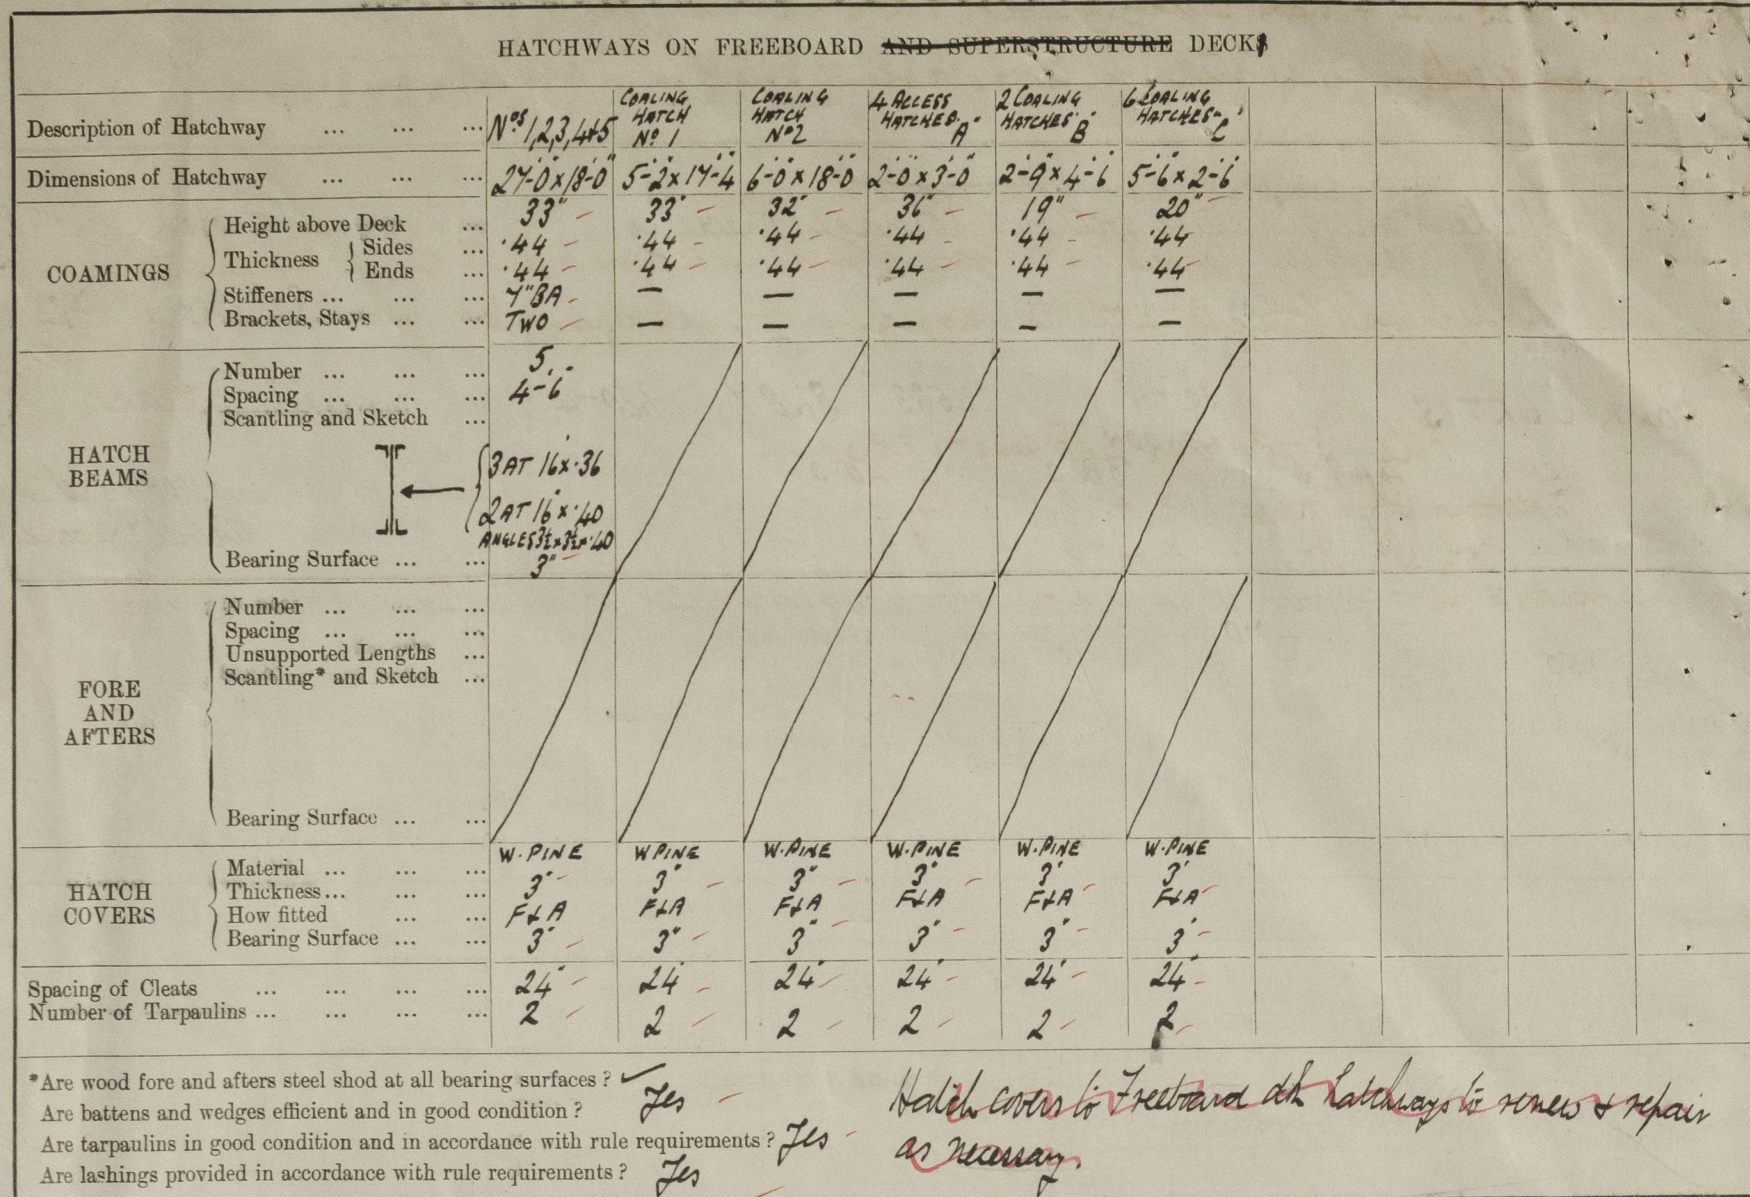 HATCHWAYS ON FREEBOARD AND SUPERSTRUCTURE DECKS
Description of Hatchway ... ... ... Nos 1,2,3,4+5 COALING HATCH No 1 COALING HATCH No 2 4 ACCESS HATCHES "A" 2 COALING HATCHES "B" 6 COALING HATCHES "C"
Dimensions of Hatchway ... ... ... 27'-0"x18'-0" 5'-2"x17'-4" 6'-0"x18'-0" 2'-0"x3'-0" 2'-9"x4'-6" 5'-6"x2'-6"
COAMINGS
Height above Deck ... 33" 33" 32" 36" 19" 20"
Thickness Sides ... .44 .44 .44 .44 .44 .44
Ends ... .44 .44 .44 .44 .44 .44
Stiffeners ... ... ... 7"BA — — — — —
Brackets, Stays ... ... TWO — — — — —
HATCH BEAMS
Number ... ... ... 5
Spacing ... ... ... 4'-6"
Scantling and Sketch ...
3 AT 16"x.36
2 AT 16"x.40
ANGLES 3½x3½x.40
Bearing Surface ... ... 3"
FORE AND AFTERS
Number ... ... ...
Spacing ... ... ...
Unsupported Lengths ...
Scantling* and Sketch ...
Bearing Surface ... ...
HATCH COVERS
Material ... ... ... W.PINE W PINE W.PINE W.PINE W.PINE W.PINE
Thickness... ... ... 3" 3" 3" 3" 3" 3"
How fitted ... ... F&A F&A F&A F&A F&A F&A
Bearing Surface ... ... 3" 3" 3" 3" 3" 3"
Spacing of Cleats ... ... ... ... 24" 24" 24" 24" 24" 24"
Number of Tarpaulins ... ... ... ... 2 2 2 2 2 2
*Are wood fore and afters steel shod at all bearing surfaces?
Are battens and wedges efficient and in good condition? Yes
Are tarpaulins in good condition and in accordance with rule requirements? Yes
Are lashings provided in accordance with rule requirements? Yes
Hatch covers to Freeboard dk hatchways to renew & repair
as necessary.